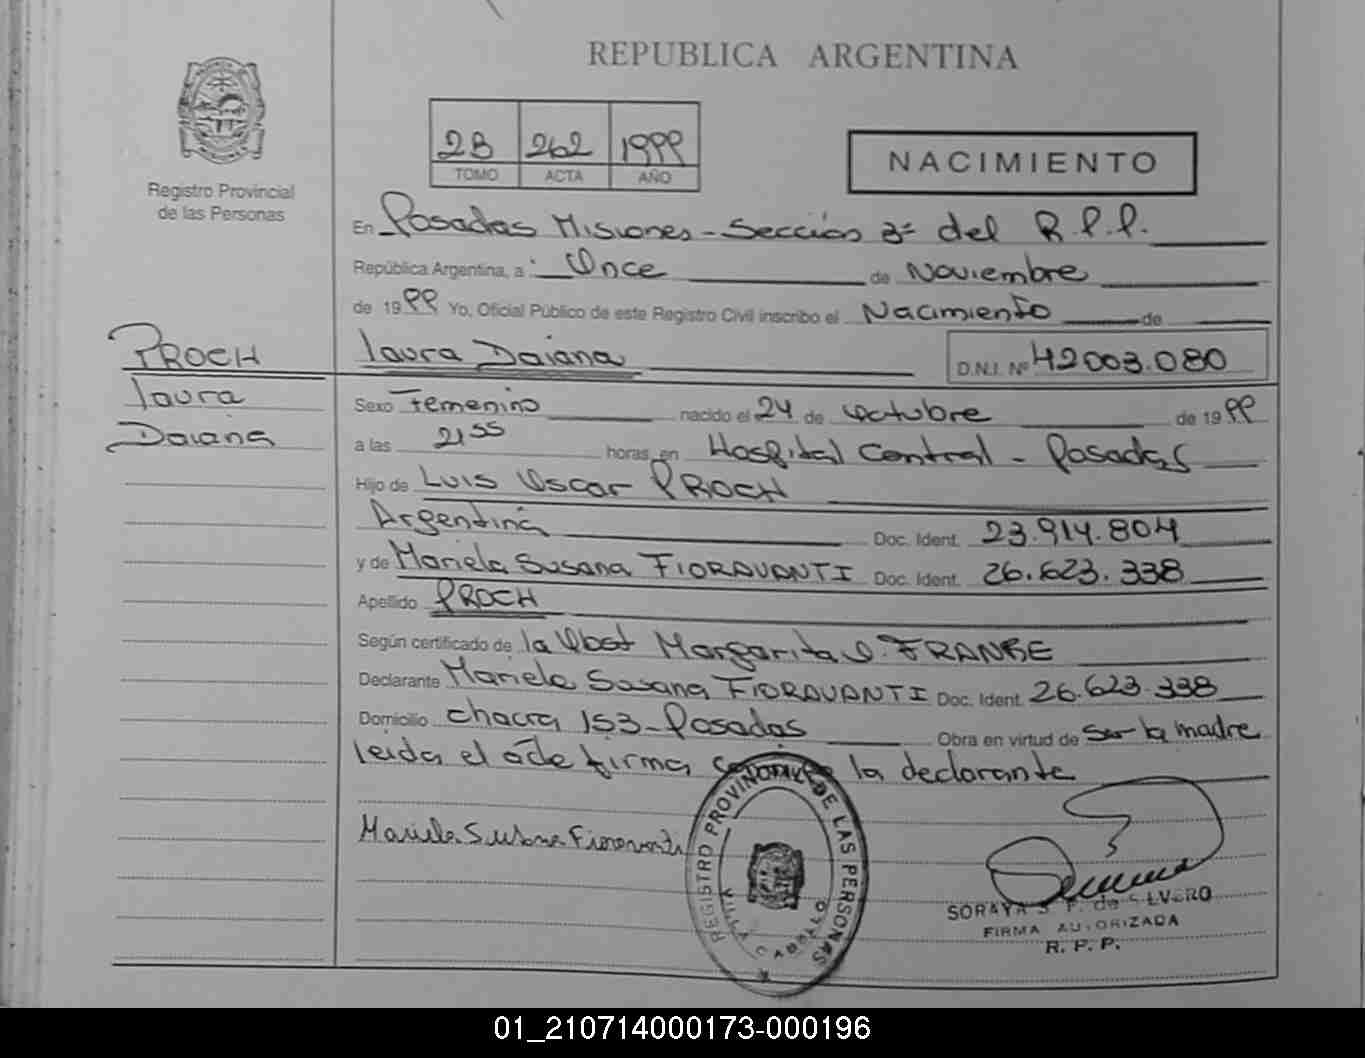 REPUBLICA ARGENTINA
2B 262 1999
TOMO ACTA AÑO
NACIMIENTO
Registro Provincial
de las Personas
En Posadas Misiones - Sección 3ª del R.P.P.
República Argentina, a Once de Noviembre
de 1999 Yo, Oficial Público de este Registro Civil inscribo el Nacimiento de
PROCH
Laura
Daiana
Laura Daiana D.N.I. Nº 42003.080
Sexo Femenino nacido el 24 de octubre de 1999
a las 21 55 horas, en Hospital Central - Posadas
Hijo de Luis Oscar PROCH
Argentina Doc. Ident. 23.914.804
y de Mariela Susana FIORAVANTI Doc. Ident. 26.623.338
Apellido PROCH
Según certificado de la Obst Margarita
Declarante Mariela Susana FIORAVANTI Doc. Ident. 26.623.338
Domicilio chacra 153 - Posadas Obra en virtud de Ser la madre
leída el firma la declarante
Mariela Susana Fioravanti
REGISTRO PROVINCIAL DE LAS PERSONAS
VILLA CABELLO
SORAYA S. F. de SILVERO
FIRMA AUTORIZADA
R. P. P.
01_210714000173-000196